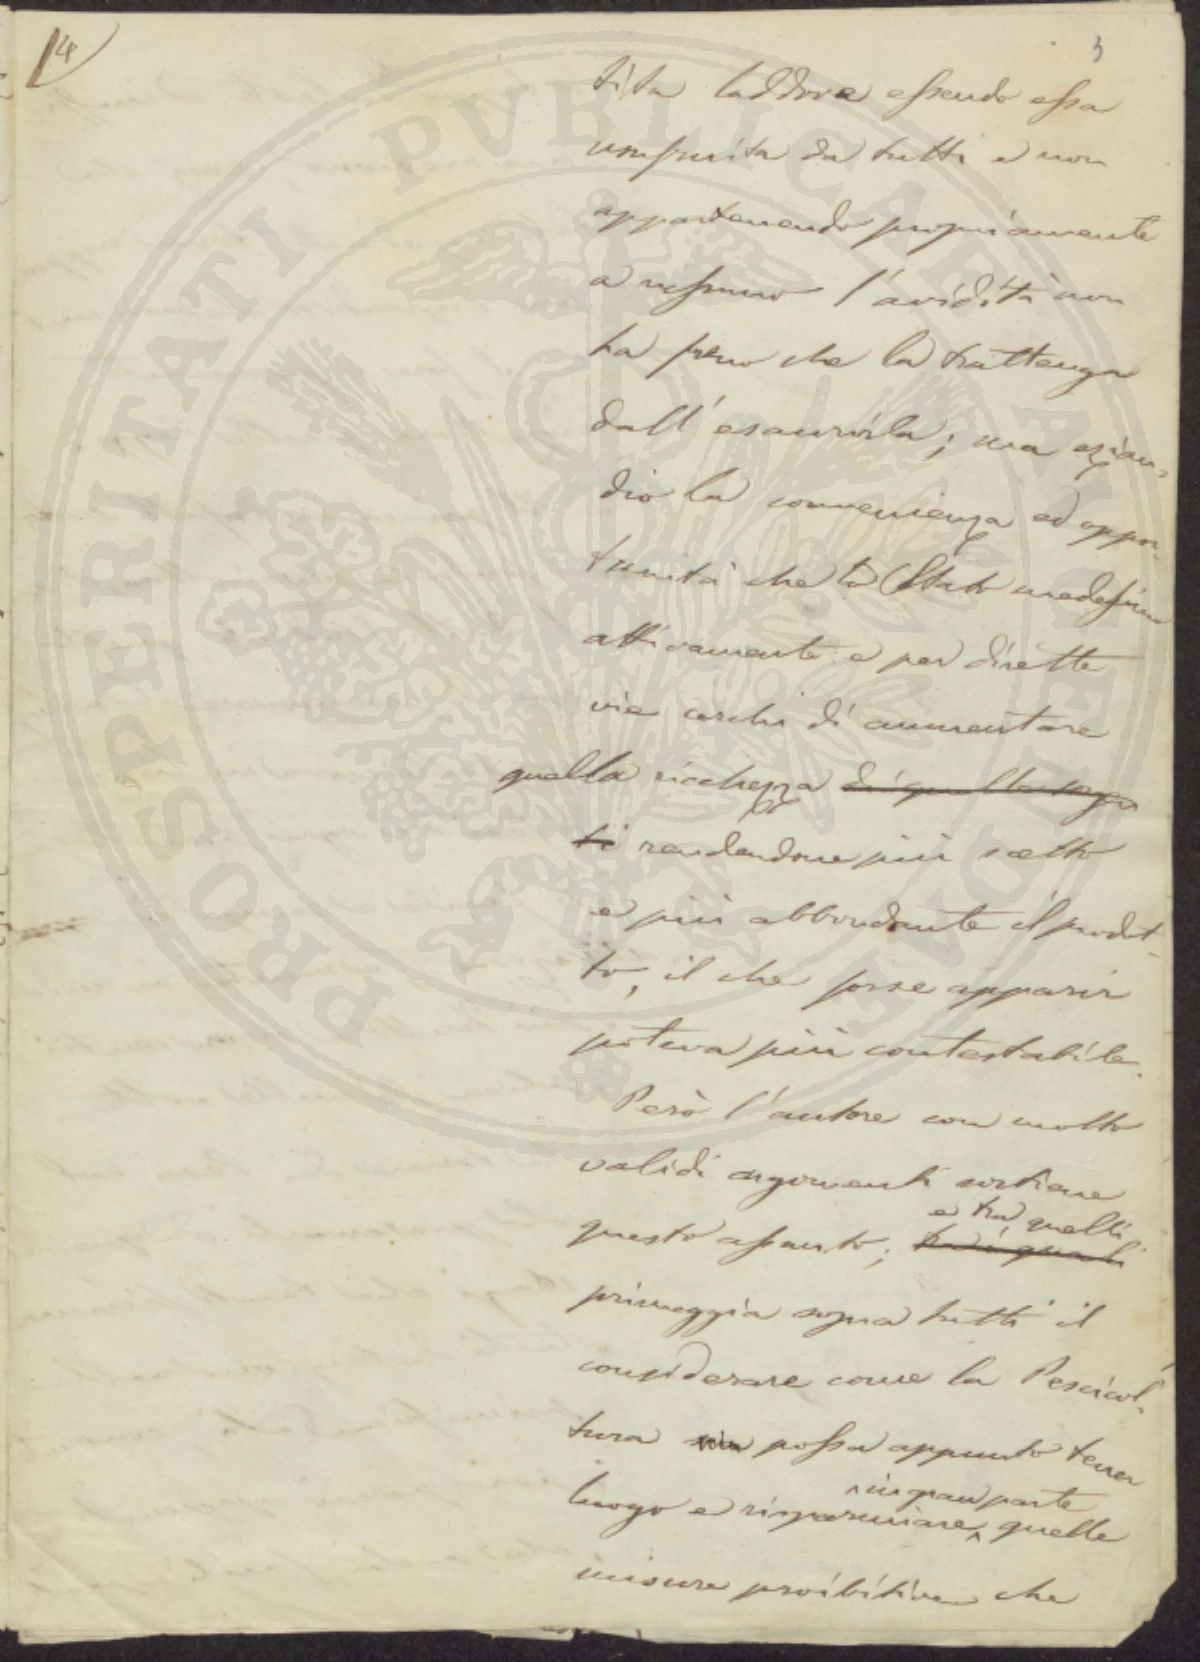 4
3
tita laddove essendo essa
usufruita da tutti e non
appartenendo propriamente
a nessuno l'avidità non
ha freno che la trattenga
dall'esaurirla; ma ezian-
dio la convenienza ed oppor-
tunità che lo Stato medesimo
attivamente e per dirette
vie cerchi di aumentare
quella ricchezza di quelle acque
ti rendendone più scelto
e più abbondante il prodot-
to, il che forse apparir
poteva più contestabile.
Però l'autore con molto
validi argomenti sostiene
e tra quelli
questo assunto; tra i quali
primeggia sopra tutti il
considerare come la Pescicol-
tura possa appunto tener
in gran parte
luogo e risparmiare quelle
misure proibitive che
PROSPERITATI PVBLICAE AVGENDAE